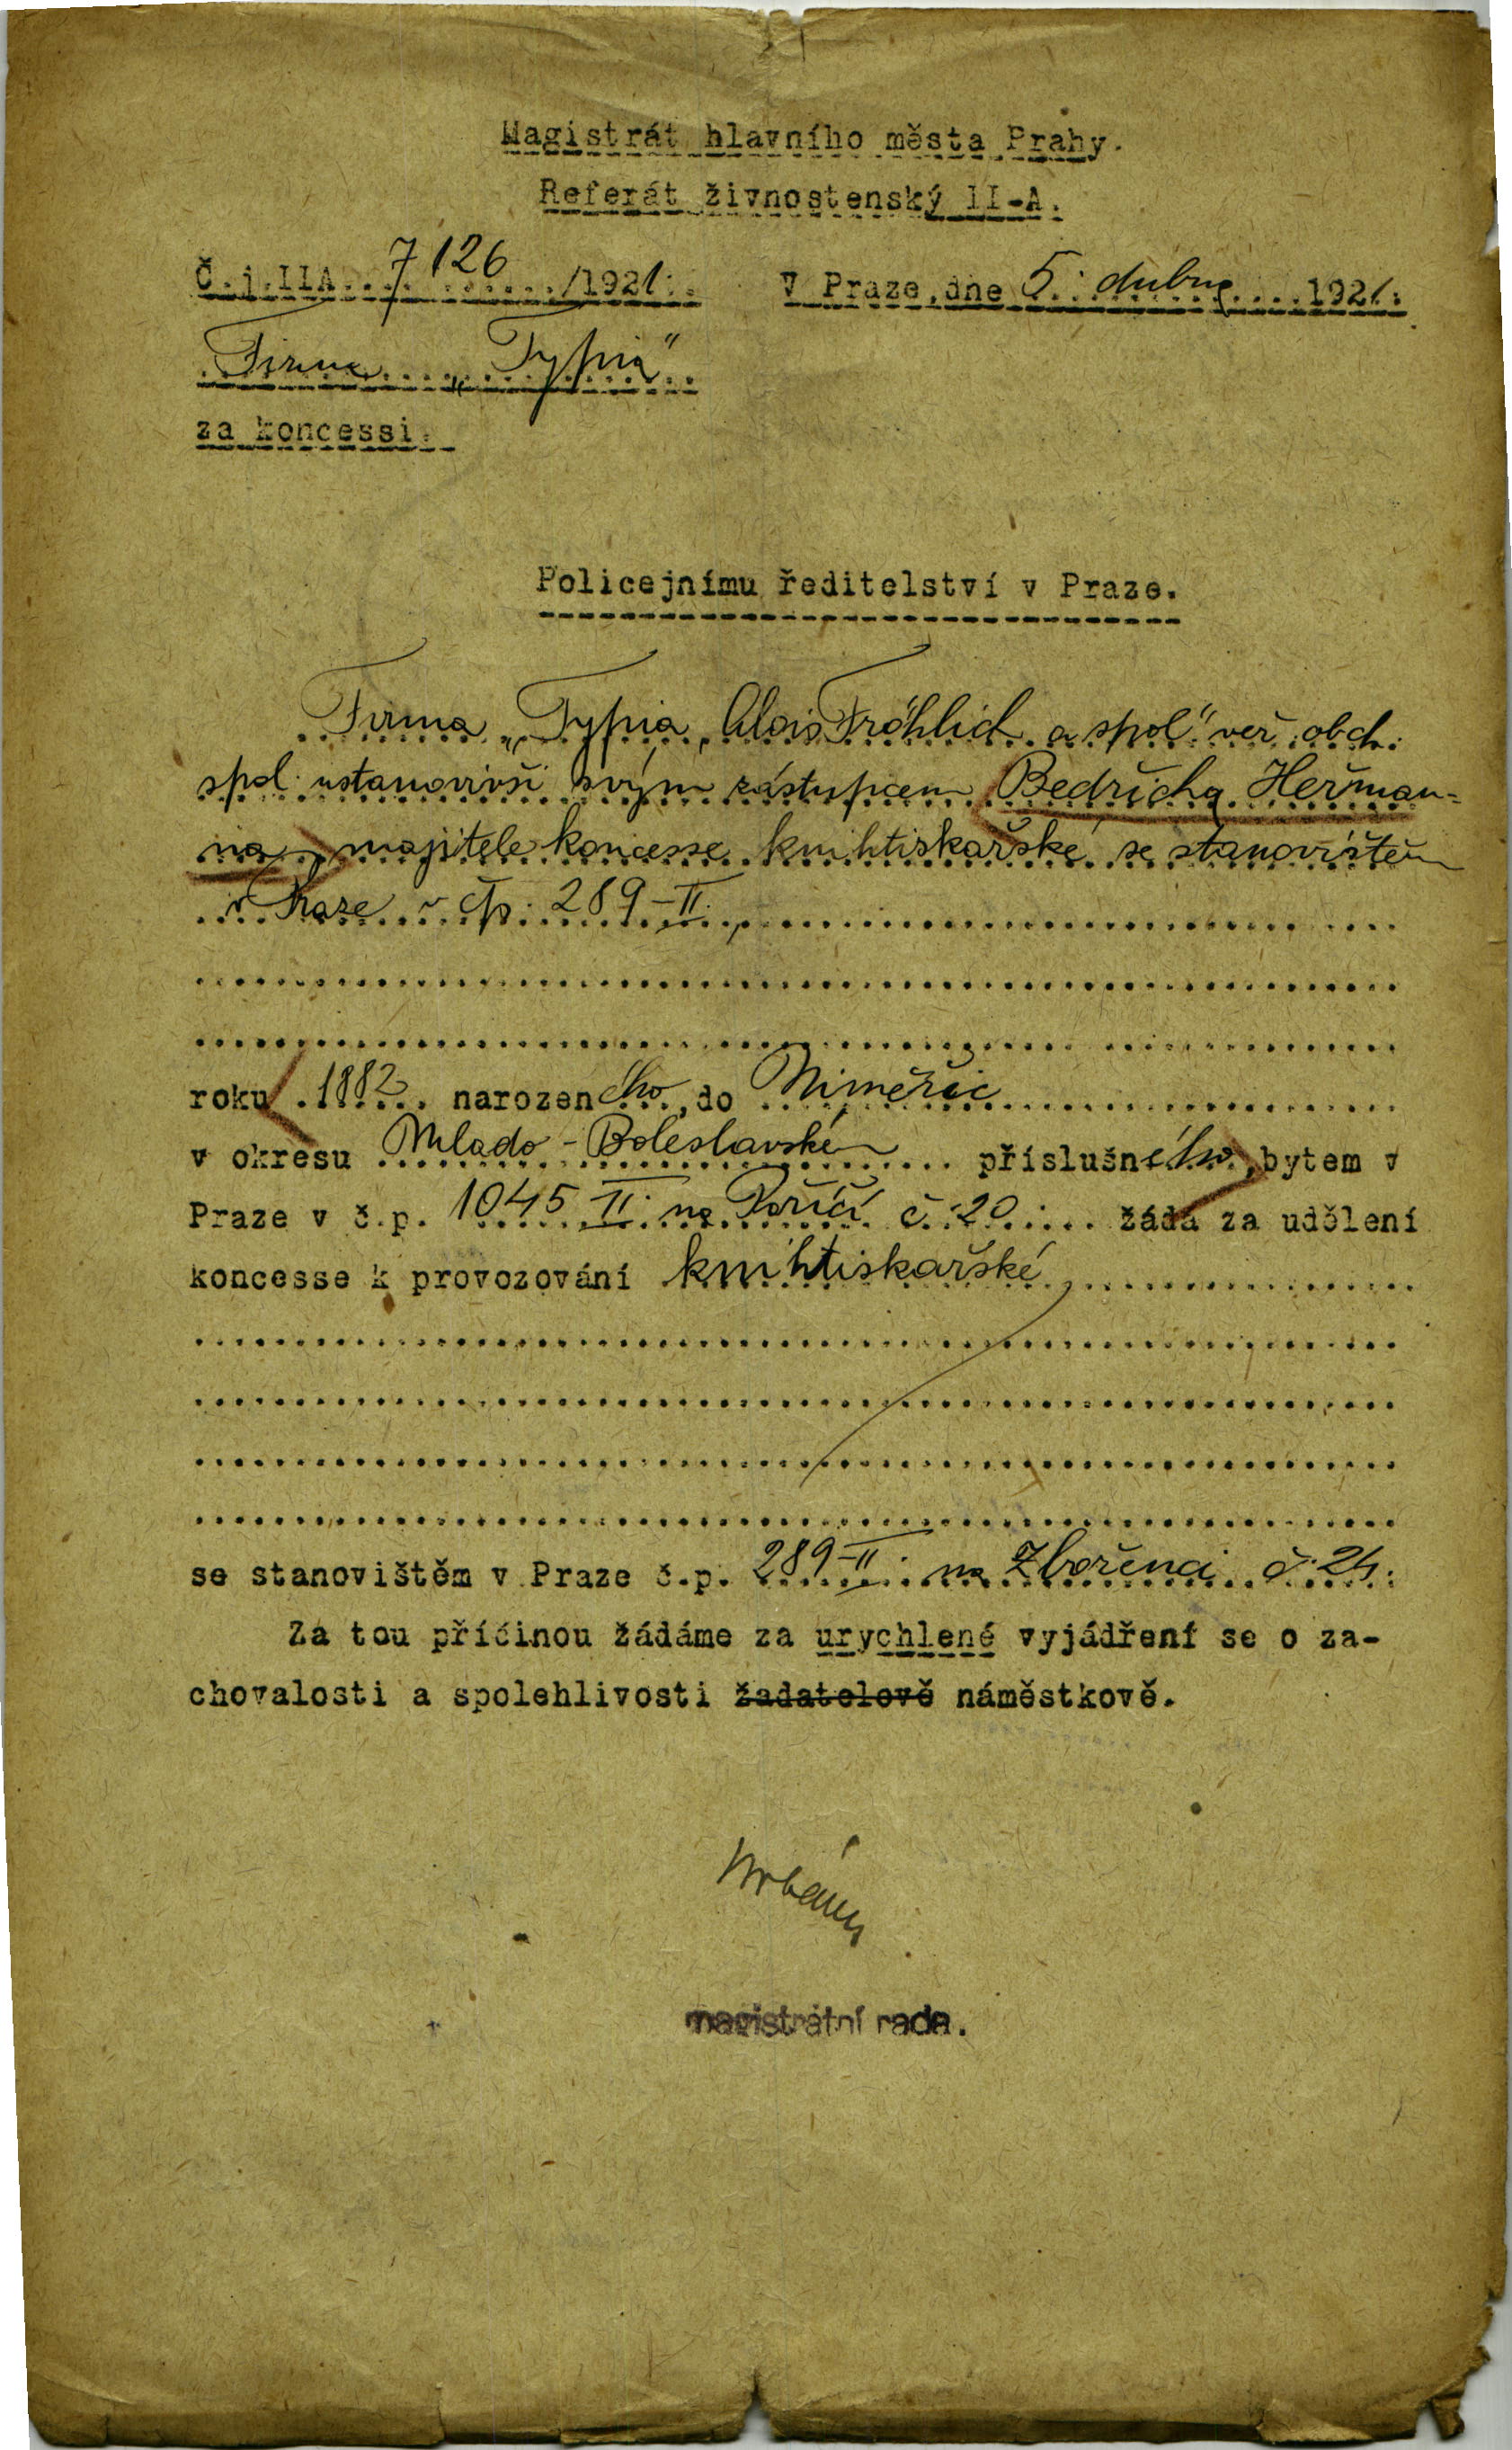 Magistrát hlavního města Prahy.
Referát živnostenský II-A.
Č.j.IIA...7126....../1921.
V Praze, dne 5. dubna....1921.
Firma „Typia“
za koncessi.
Policejnímu ředitelství v Praze.
Firma „Typia, Alois Fröhlich a spol“ veř. obch.
spol. ustanovivši svým zástupcem Bedřicha Heřman-
na, majitele koncesse knihtiskařské se stanovištěm
v Praze v čp. 289-II.,
roku 1882 narozeného, do Niměřic
v okresu Mlado-Boleslavském příslušného, bytem v
Praze v č.p. 1045 II. na Poříčí č. 20 žádá za udělení
koncesse k provozování knihtiskařské
se stanovištěm v Praze č.p. 289-II. na Zbořenci č. 24.
Za tou příčinou žádáme za urychlené vyjádření se o za-
chovalosti a spolehlivosti žadatelově náměstkově.
magistrátní rada.